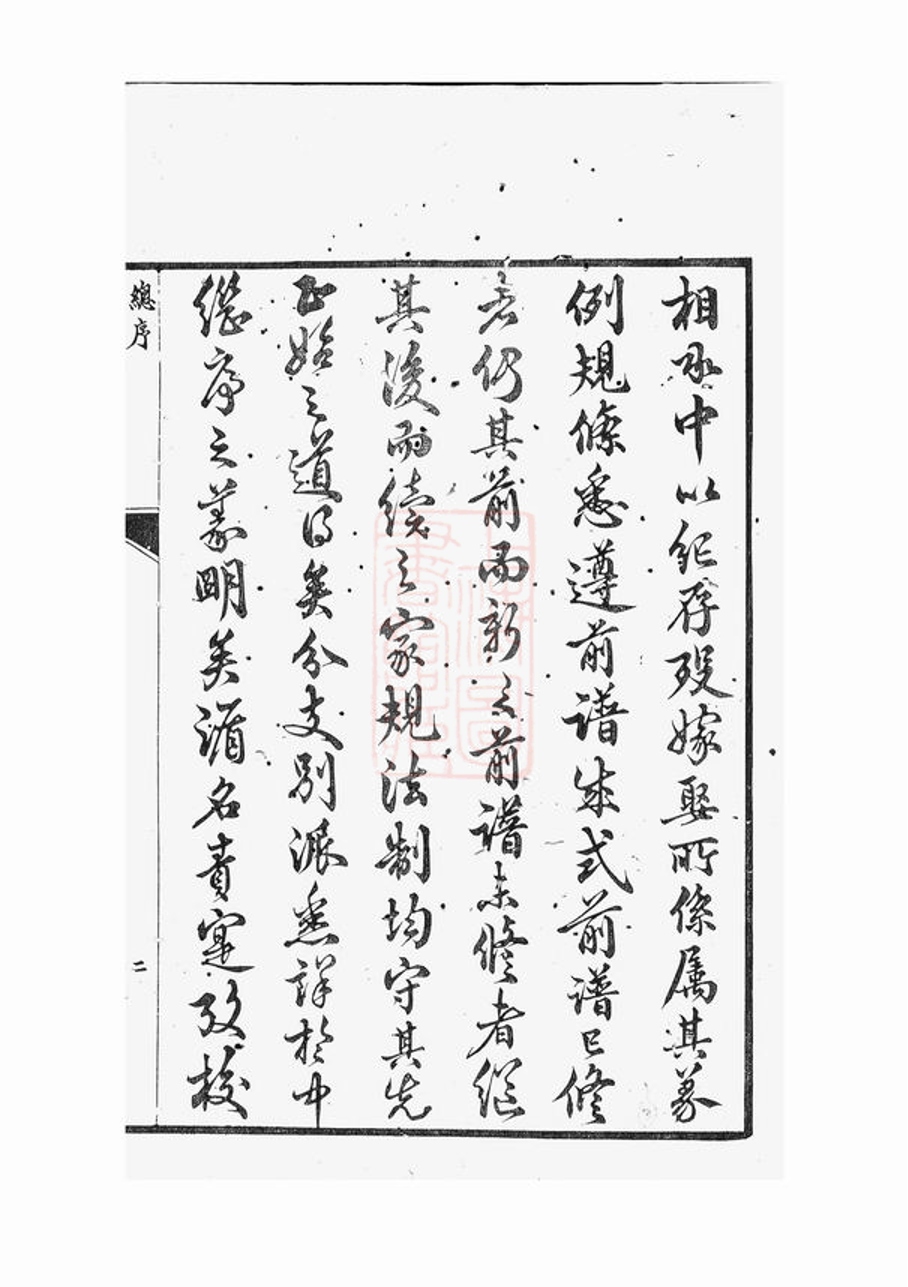 相承中以紀存殁嫁娶所係屬其義
例規條悉遵前譜成式前譜已修
者仍其前而新之前譜未修者繼
其後而續之家規法制均守其先
正始之道得矣分支別派悉詳於中
繼序之義明矣循名責寔攷校
總序
二